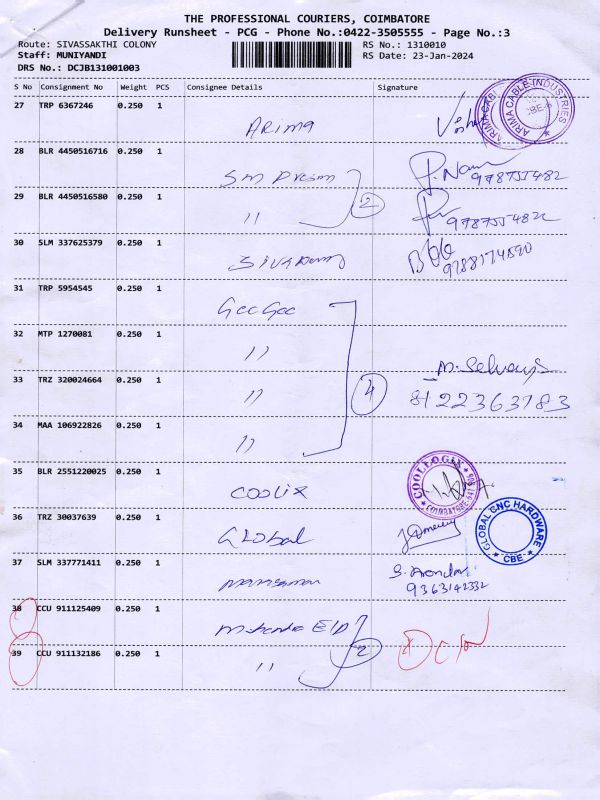 THE PROFESSIONAL COURIERS, COIMBATORE
Delivery Runsheet - PCG - Phone No.:0422-3505555 - Page No.:3
Route: SIVASSAKTHI COLONY RS No.: 1310010
Staff: MUNIYANDI RS Date: 23-Jan-2024
DRS No.: DCJB131001003
S No Consignment No Weight PCS Consignee Details Signature
27 TRP 6367246 0.250 1 Arima
ARIMA CABLE INDUSTRIES
28 BLR 4450516716 0.250 1
9787554822
29 BLR 4450516580 0.250 1 " 2
9787554822
30 SLM 337625379 0.250 1
31 TRP 5954545 0.250 1 GeeGee
32 MTP 1270081 0.250 1 "
33 TRZ 320024664 0.250 1 " 4
8122363783
34 MAA 106922826 0.250 1 "
35 BLR 2551220025 0.250 1 Coolix
36 TRZ 30037639 0.250 1 Global
GLOBAL CNC HARDWARE
CBE
37 SLM 337771411 0.250 1
9363142332
38 CCU 911125409 0.250 1
39 CCU 911132186 0.250 1 " 2